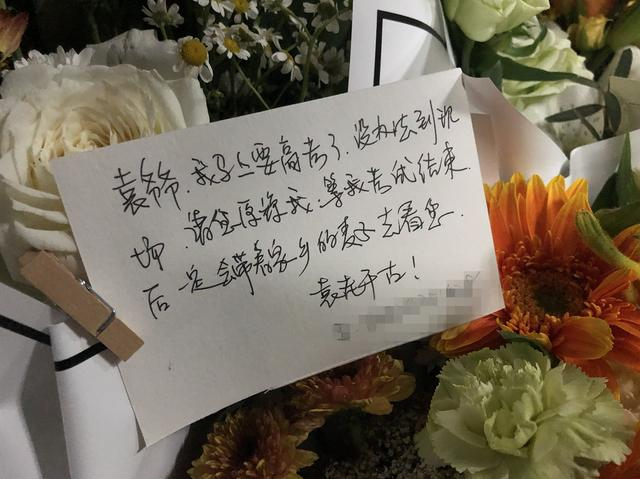 袁爷爷，我马上要高考了，没办法到现
场，请您原谅我；等我考试结束
后一定会带着家乡的麦子去看您．
袁老千古！